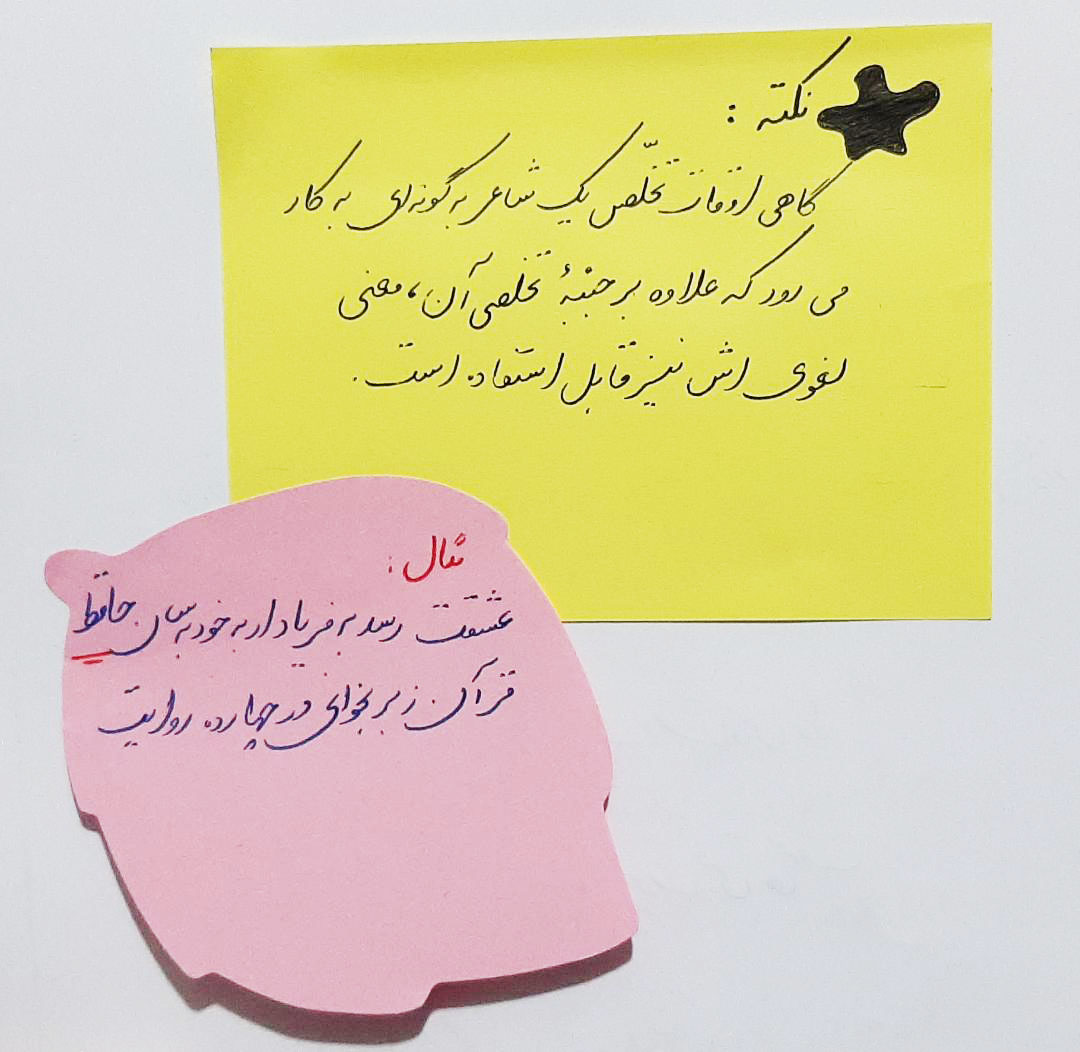 نکته :
گاهی اوقات تخلّص یک شاعر به گونه‌ای به کار
می رود که علاوه بر جنبهٔ تخلصی آن، معنی
لغوی اش نیز قابل استفاده است.
مثال :
عشقت رسد به فریاد ار به خود به سان حافظ
قرآن ز بر بخوانی در چهارده روایت